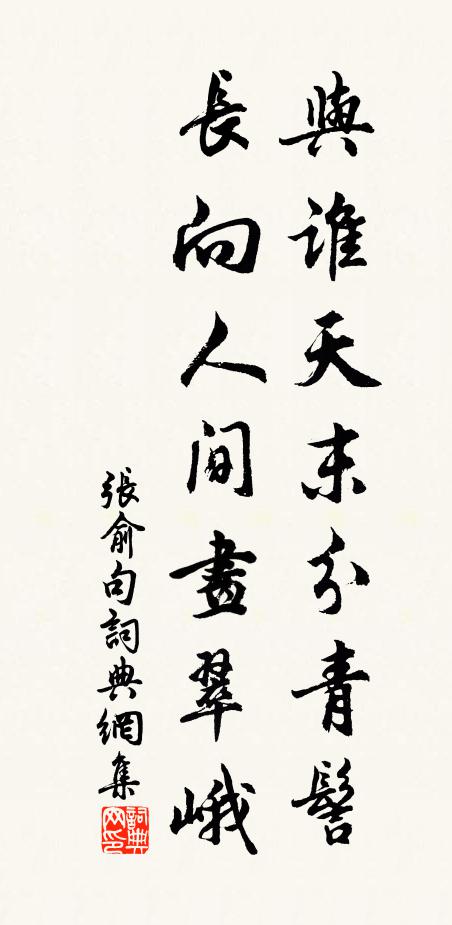 與誰天末分青髻
長向人間畫翠峨
張俞句詞典網集
詞典網印